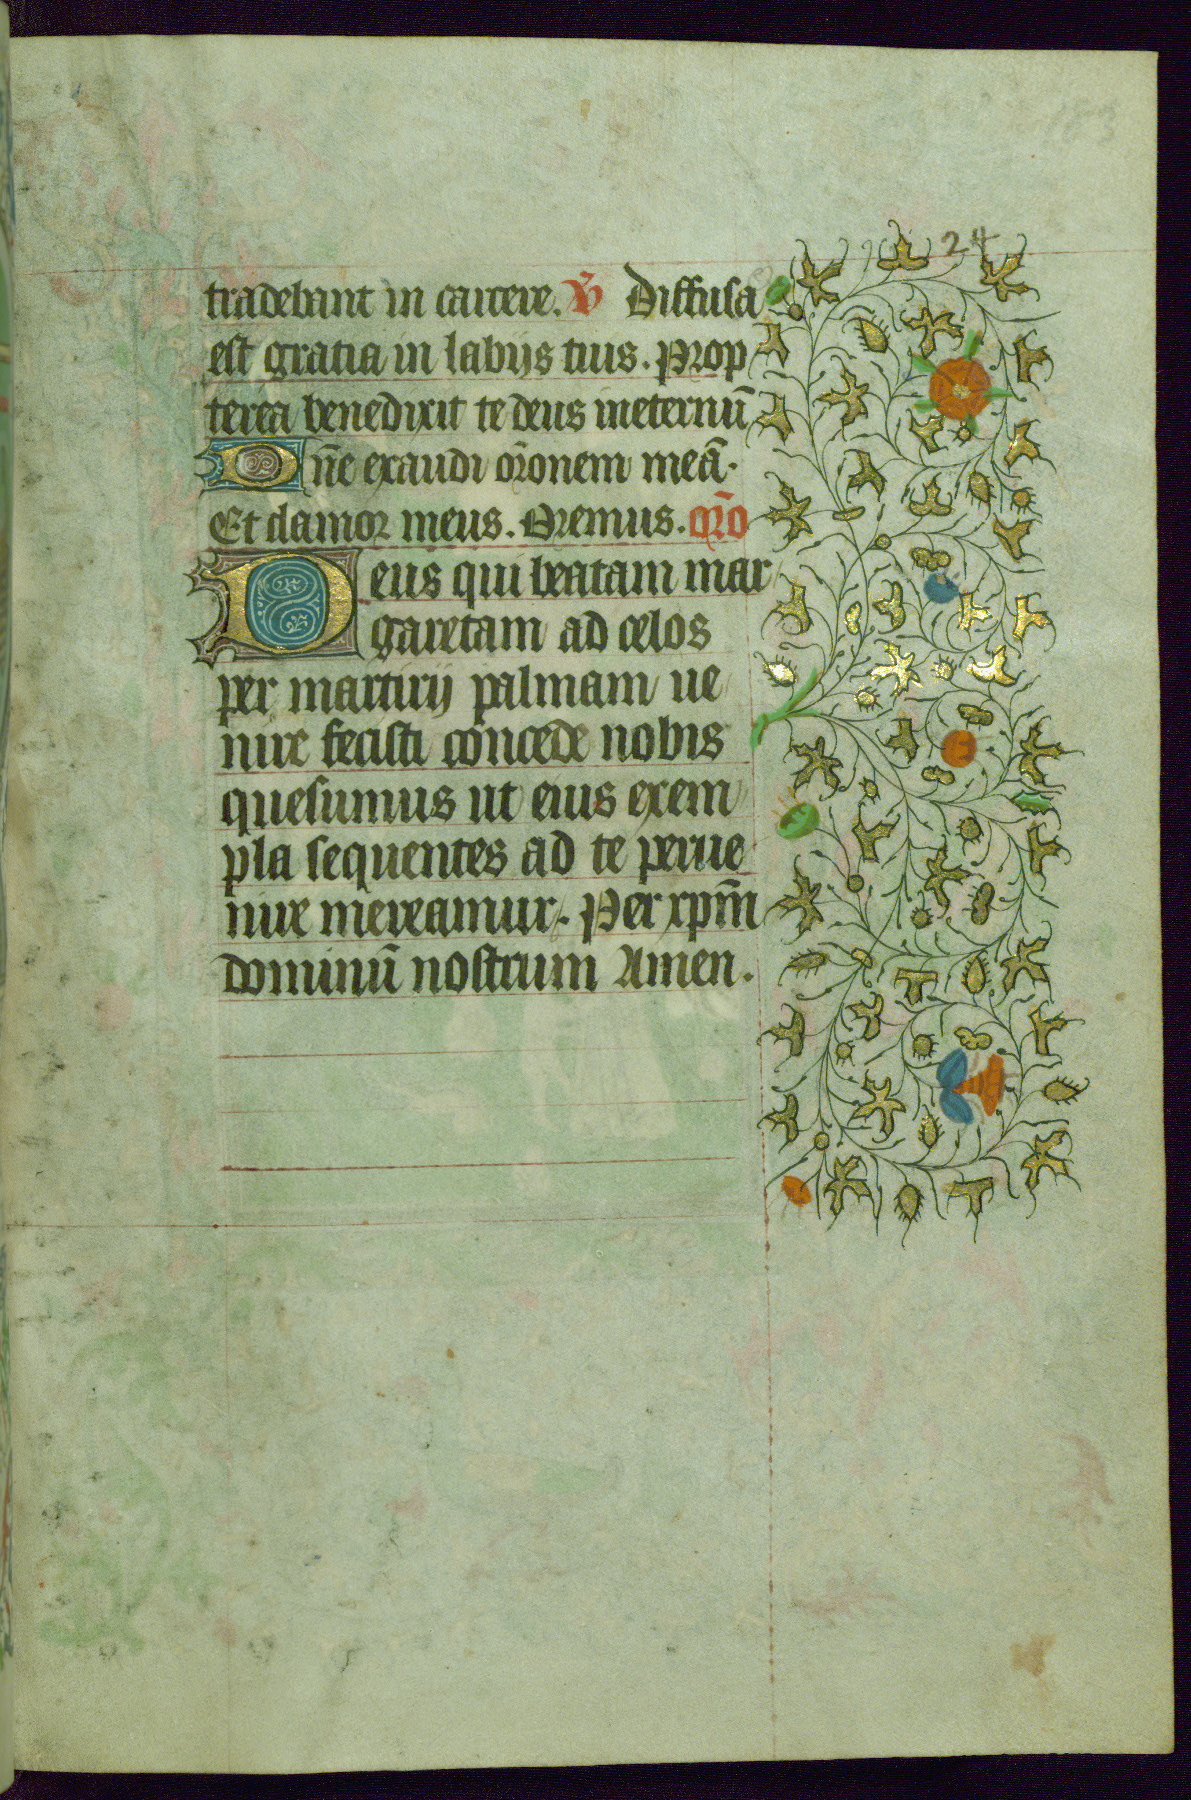 183
24
tradebant in carcere. V̄ Diffusa
est gratia in labijs tuis. Prop
terea benedixit te deus ineternū
Dn̄e exaudi or̄onem meā.
Et clamor meus. Oremus. or̄o
Deus qui beatam mar
garetam ad celos
per martirij palmam ue
nire fecisti concede nobis
quesumus ut eius exem
pla sequentes ad te perue
nire mereamur. Per xpm̄
dominū nostrum Amen.